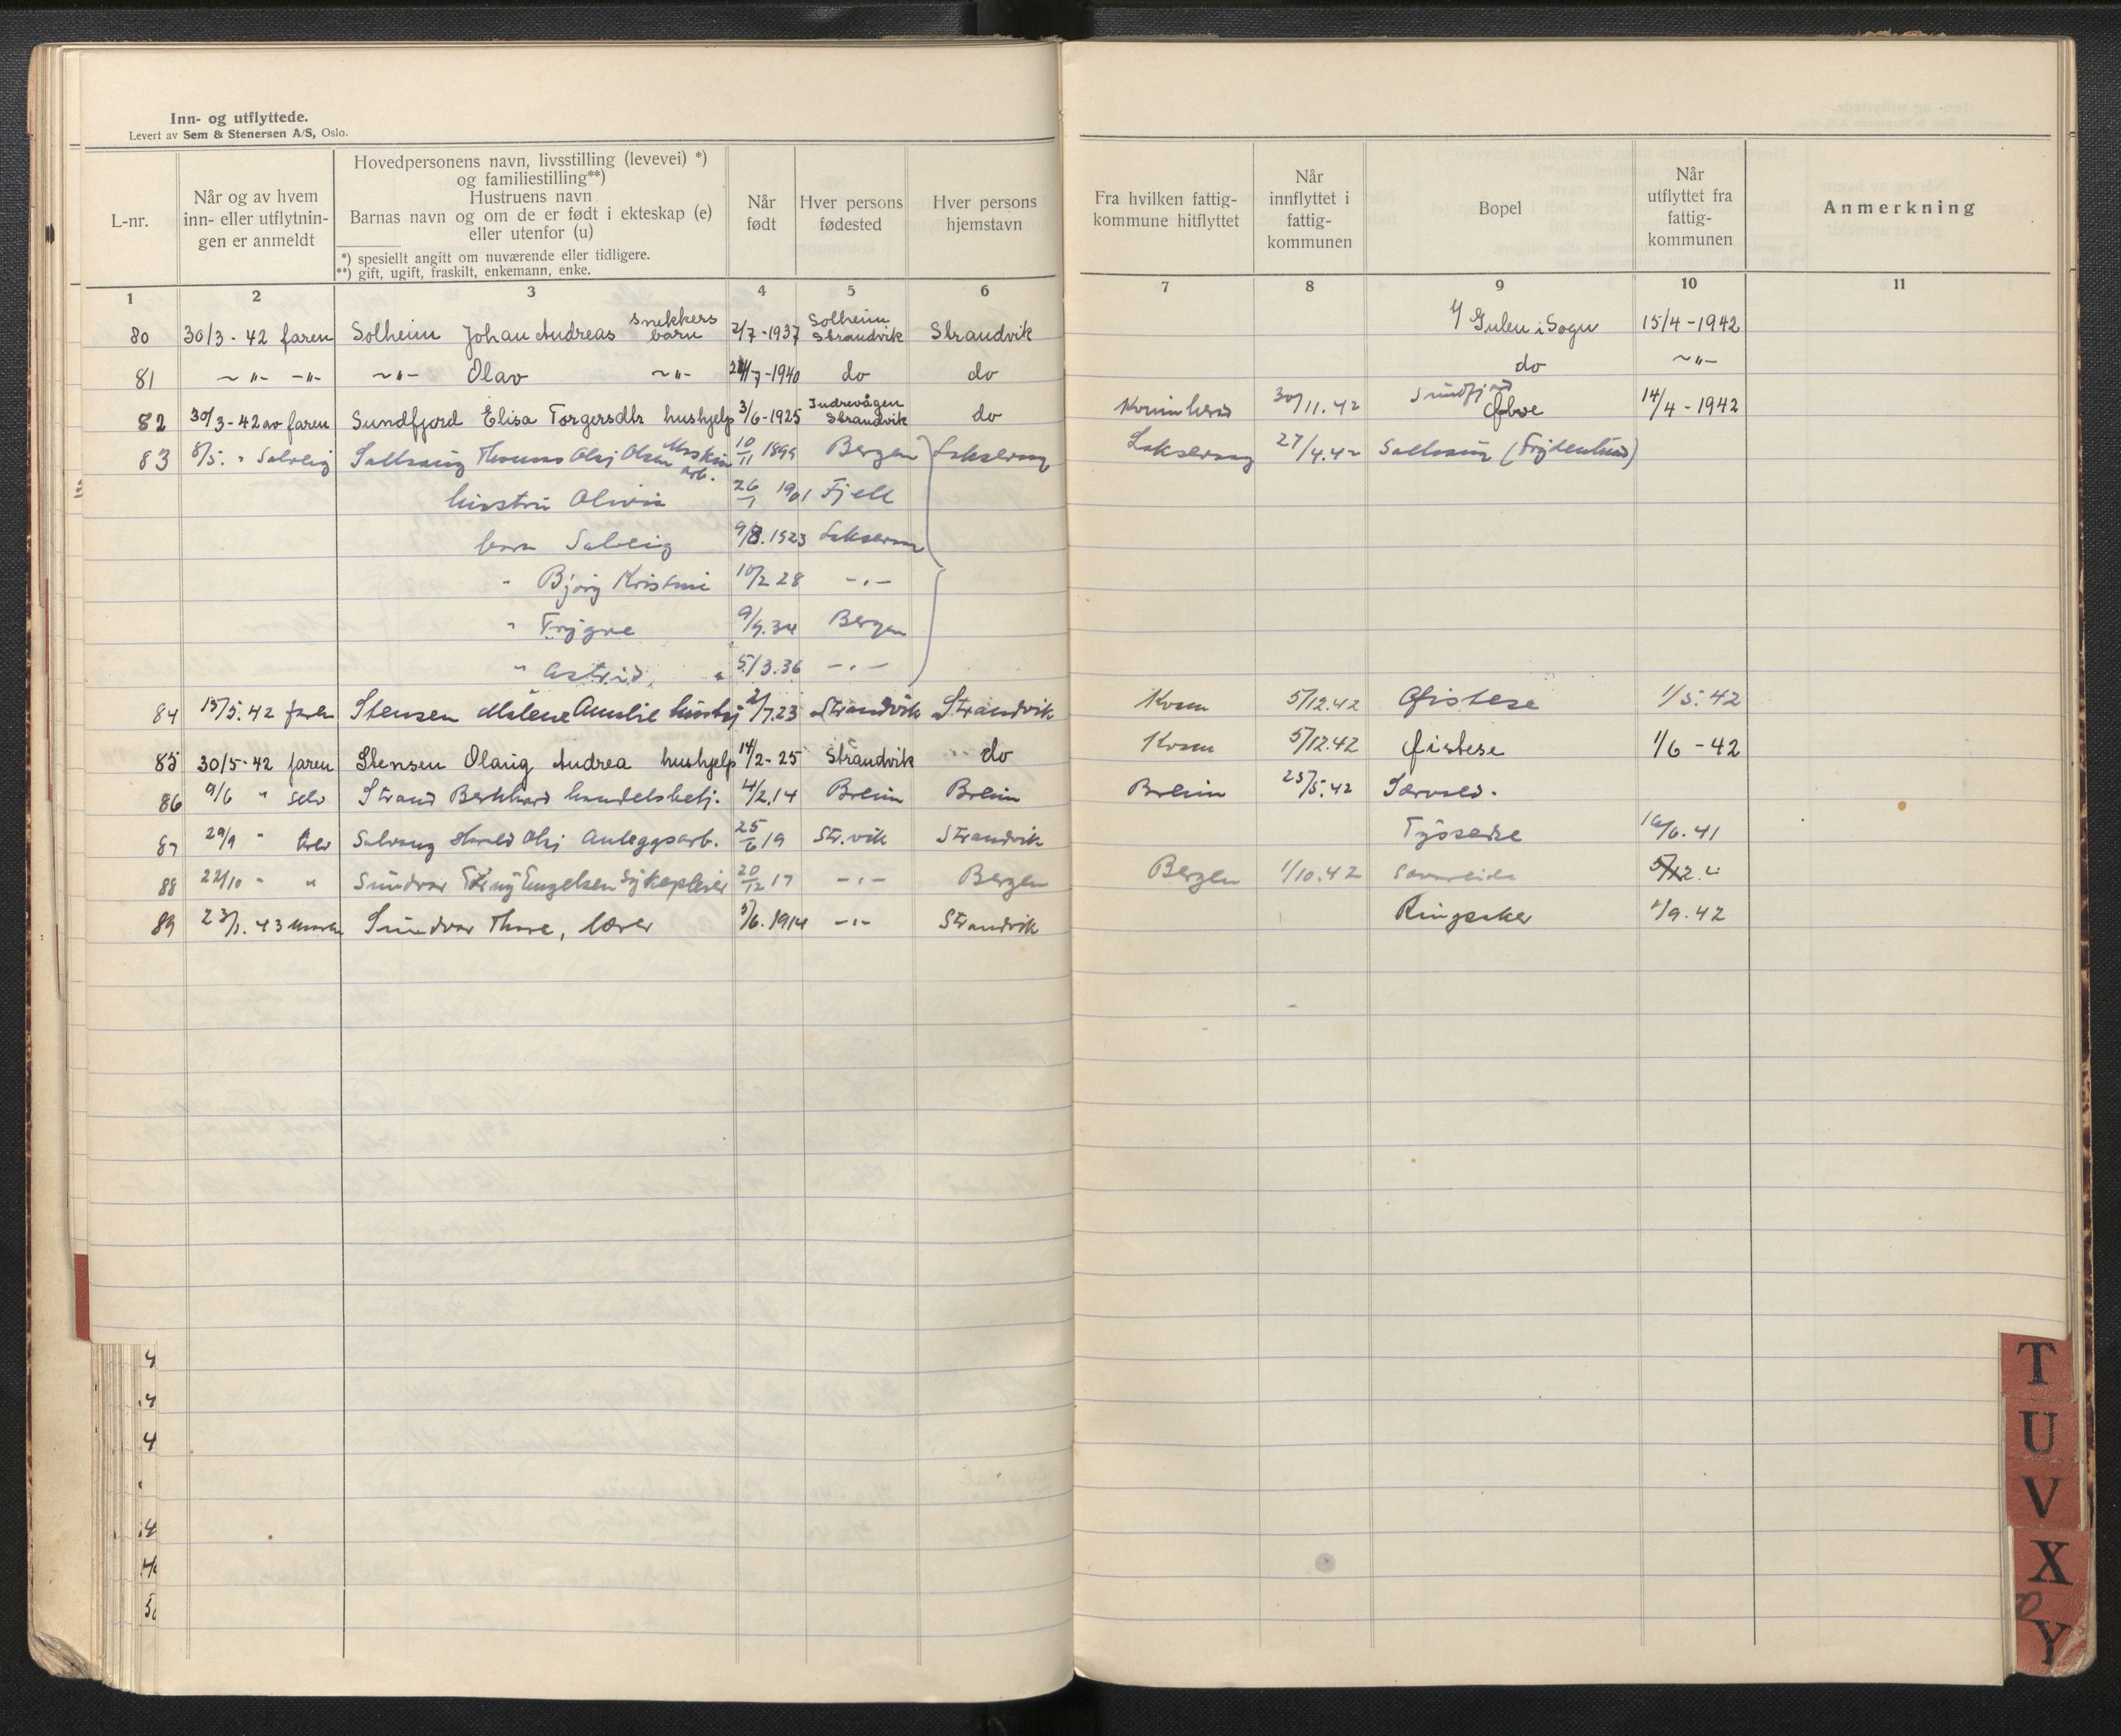 Inn- og utflyttede.
Levert av Sem & Stenersen A/S, Oslo.
L-nr.
Når og av hvem
inn- eller utflytnin-
gen er anmeldt
Hovedpersonens navn, livsstilling (levevei) *)
og familiestilling**)
Hustruens navn
Barnas navn og om de er født i ekteskap (e)
eller utenfor (u)
*) spesiellt angitt om nuværende eller tidligere.
**) gift, ugift, fraskilt, enkemann, enke.
Når
født
Hver persons
fødested
Hver persons
hjemstavn
Fra hvilken fattig-
kommune hitflyttet
Når
innflyttet i
fattig-
kommunen
Bopel
Når
utflyttet fra
fattig-
kommunen
Anmerkning
1 2 3 4 5 6 7 8 9 10 11
80 30/3 - 42 faren Solheim Johan Andreas snekkers barn 2/7 - 1937 Solheim Strandvik Strandvik Gulen i Sogn 15/4 - 1942
81 ~ " - - " - ~ " - Olav ~ " - /7 - 1940 do do do ~ " -
82 30/3 - 42 av faren Sundfjord Elisa Torgersdtr hushjelp 3/6 - 1925 Indrevågen Strandvik do 30/11.42 14/4 - 1942
83 8/5. " Solveig Thomas Olaj Olsen Maskin arb. 10/11 1899 Bergen Laksevaag Laksevaag 27/4.42
hustru Olivia 26/1 1901 Fjell
barn Solveig 9/8. 1923 Laksevaag
" Bjørg Kristine 10/2 28 - " -
" Trygve 9/9. 34 Bergen
" Astrid " 5/3.36 - " -
84 15/5. 42 faren Stensen Malene Amalie hushj 2/7.23 Strandvik Strandvik Kvam 5/12.42 Øistese 1/5. 42
85 30/5 - 42 faren Stensen Olaug Andrea hushjelp 14/2 - 25 Strandvik do Kvam 5/12.42 Øistese 1/6 - 42
86 9/6 " selv Strand Bernhard handelsbetj. 4/2.14 Breim Breim Breim 25/5.42 Sævold.
87 29/9 " Salvaag Harald Olaj Anleggsarb. 25/6 19 Str.vik Strandvik Tyssedal 16/6. 41
88 22/10 " " Sundvor Engelsen Sykepleier 20/12 17 - " - Bergen Bergen 1/10.42 Sævareide 5/12.
89 23/1. 43 Sundvor Thore, lærer 5/6. 1914 - " - Strandvik Ringsaker 1/9. 42
T
U
V
X
Y